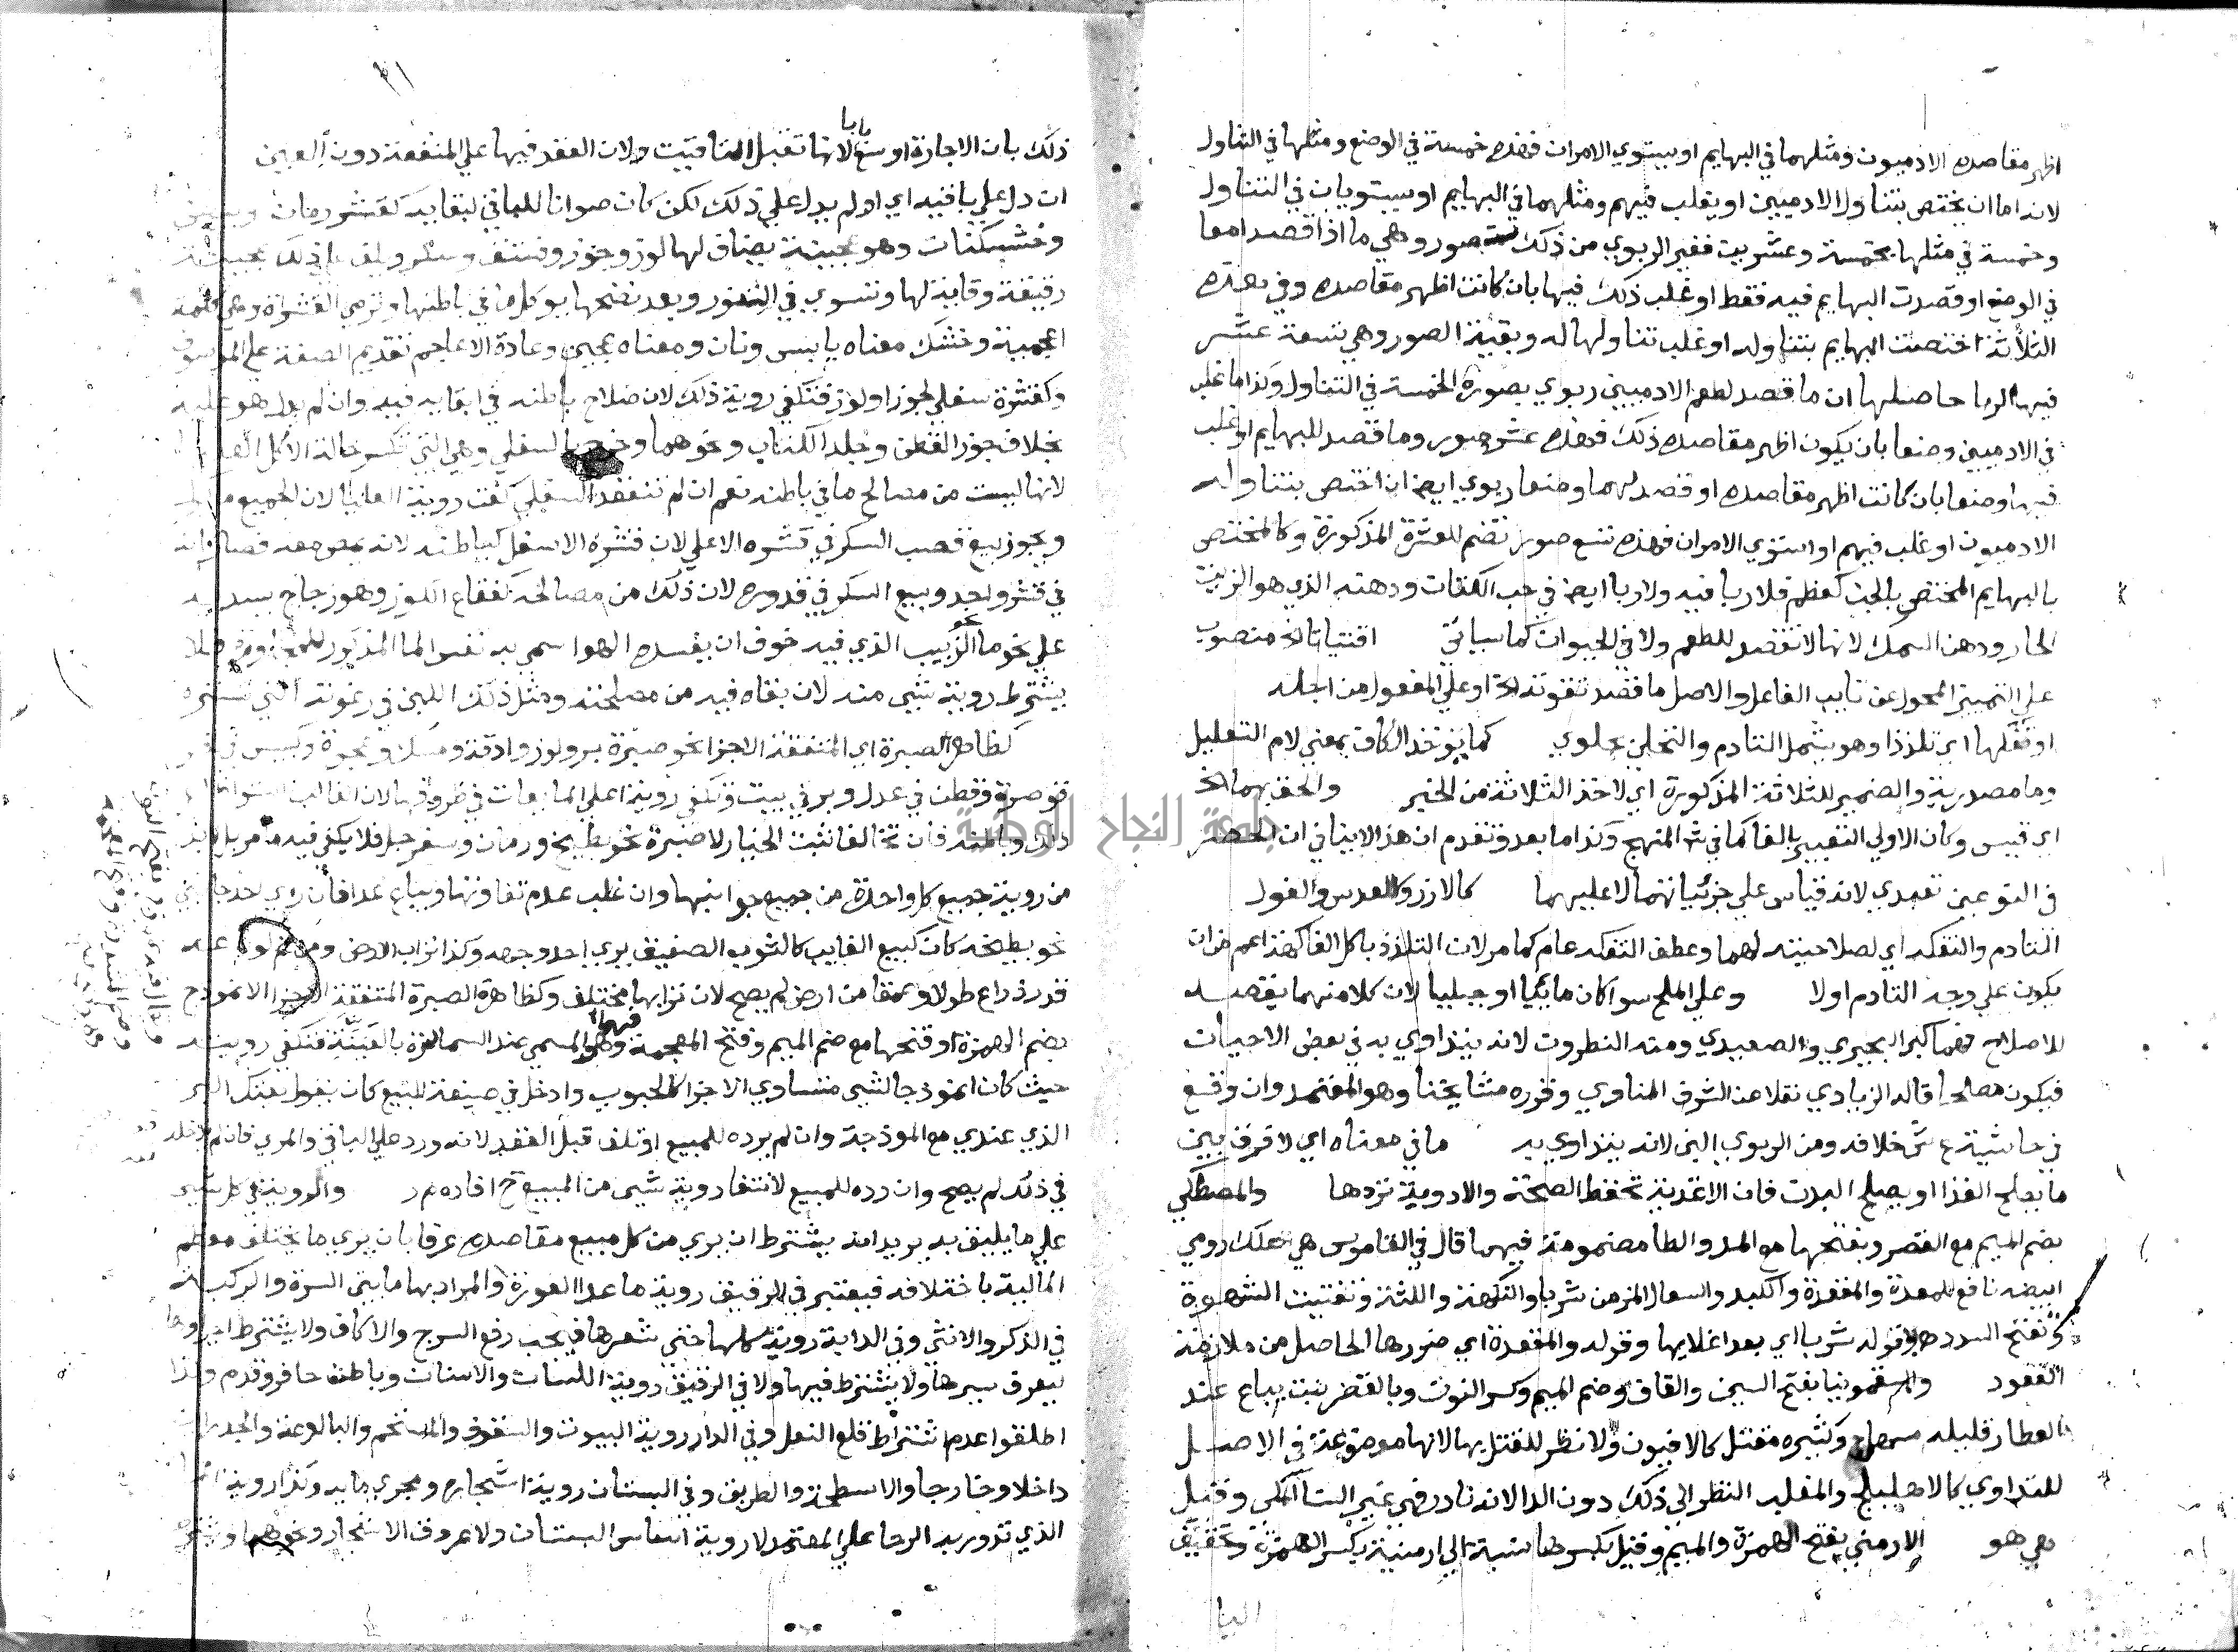 اظهر مقاصده الادميون ومثلهما في البهايم او يستوي الامران فهذه خمسة في الوضع ومثلها في التناول
لانه اما ان يختص بتناوله الادميين او يغلب فيهم ومثلهما في البهايم او يستويان في التناول
وخمسة في مثلها بخمسة وعشرين فغير الربوي من ذلك ست صور وهي ما اذا قصدا معا
في الوضع او قصدت البهايم فيه فقط او غلب ذلك فيها بان كانت اظهر مقاصده وفي هذه
الثلاثة اختصت البهايم بتناوله او غلب تناولها له وبقية الصور وهي تسعة عشر
فيها الربا حاصلها ان ما قصد لطعم الادميين ربوي بصوره الخمسة في التناول وكذا ما غلب
في الادميين وضعا بان يكون اظهر مقاصده ذلك فهذه عشر صور وما قصد للبهايم او غلب
فيها وضعا بان كانت اظهر مقاصده او قصد لهما وضعا ربوي ايضا ان اختص بتناوله
الادميون او غلب فيهم او استوي الامران فهذه تسع صور تضم للعشرة المذكورة وكالمختص
بالبهايم المختص بالجن كعظم فلا ربا فيه ولا ربا ايضا في حب الكتان ودهنه الذي هو الزيت
الحار ودهن السمك لانها لا تقصد للطعم ولا في الحيوان كما سياتي اقتياتا الخ منصوب
علي التمييز المحول عن نايب الفاعل والاصل ما قصد تقوته الخ او علي المفعول من اجله
او تفكها اي تلذذا وهو يشمل التادم والتحلي بحلوي كما يوخذ الكاف بمعني لام التعليل
وما مصدرية والضمير للثلاثة المذكورة اي لاخذ الثلاثة من الخبر والحق بهما الخ
اي قيس وكان الاولي التعبير بالفا كما في شرح المنهج وكذا ما بعد وتقدم ان هذا لا ينافي ان الحصر
في النوعين تعبدي لانه قياس علي جزئياتهما لا عليهما كالارز والعدس والفول
التادم والتفكه اي لصلاحيته لهما وعطف التفكه عام كما مر لان التلذذ باكل الفاكهة اعم من ان
يكون علي وجه التادم اولا وعلي الملح سوا كان مائيا او جبليا لان كلا منهما يقصد
للاصلاح فهما كالبحيري والصعيدي ومنه النطرون لانه يتداوي به في بعض الاحيان
فيكون مصلحا قاله الزيادي نقلا عن الشرف المناوي وقرره مشايخنا وهو المعتمد وان وقع
في حاشية ع ش خلافه ومن الربوي البن لانه يتداوي به ما في معناه اي لا فرق بين
ما يصلح الغذا او يصلح البدن فان الاغذية تحفظ الصحة والادوية تردها والمصطكي
بضم الميم مع القصر وبفتحها مع المد والطا مضمومة فيهما قال في القاموس هي علك رومي
ابيضه نافع للمعدة والمقعدة والكبد والسعال المزمن شربا والنكهة واللثة وتفتيت الشهوة
وتفتح السدد وقوله شربا اي بعد اغلايها وقوله والمقعدة اي ضررها الحاصل من ملازمة
القعود والسقمونيا بفتح السين والقاف وضم الميم وكسر النون وبالقصر نبت يباع عند
العطار قليله مسهل وكثيره مقتل كالافيون ولا نظر للقتل بها لانها موضوعة في الاصل
للتداوي كالاهليلج والمغلب النظر الي ذلك دون الدا لانه نادر في غير البتا المكي وقيل
هي هو الارمني بفتح الهمزة والميم وقيل بكسرهما نسبة الي ارمينية بكسر الهمزة وتخفيف
اليا
ذلك بان الاجارة اوسع بابا لانها تقبل التاقيت ولان العقد فيها علي المنفعة دون العين
ان دل علي باقيه اي او لم يدل علي ذلك لكن كان صوانا للباقي لبقايه كقشر رمان وبيض
وخشكنان وهو عجينة يضاف لها لوز وجوز وفستق وسكر ويلف ذلك بعجينة
رقيقة وقاية لها وتسوي في التنور وبعد نضجها يوكل ما في باطنها وترمي القشرة وهي كلمة
اعجمية وخشك معناه يابس ونان ومعناه عجين وعادة الاعاجم تقديم الصفة علي الموصوف
وكقشرة سفلي لجوز او لوز فتكفي روية ذلك لان صلاح باطنه في ابقايه فيه وان لم يدل هو عليه
بخلاف جوز القطن وجلد الكتاب ونحوهما وخرج بالسفلي وهي التي تكسر حالة الاكل العليا
لانها ليست من مصالح ما في باطنه نعم ان لم تنعقد السفلي كفت روية العليا لان الجميع ماكول
ويجوز بيع قصب السكر في قشره الاعلي لان قشره الاسفل كباطنه لانه يمص معه فصار كانه
في قشر واحد وبيع السكر في قدوره لان ذلك من مصالحه كفقاع الكوز وهو زجاج يسد به
علي نحو ما الزبيب الذي فيه خوف ان يفسده الهوا سمي به نفس الما المذكور للمجاورة فلا
يشترط روية شي منه لان بقاه فيه من مصلحته ومثل ذلك اللبن في رغوته التي تستره
كظاهر الصبرة اي المتفقة الاجزا نحو صبرة بر ولوز وادقة ومسك وعجوة وكبيس في
قوصرة وقطن في عدل وبر في بيت وتكفي روية اعلي المايعات في ظروفها لان الغالب استوا
ذلك وبالمثلة فان تخالفا ثبت الخيار لا صبرة نحو بطيخ ورمان وسفرجل فلا يكفي فيه ما مر بل لابد
من روية جميع كل واحدة من جميع جوانبها وان غلب عدم تفاوتها ويباع عدا فان راي احد جانبي
نحو بطيخة كان كبيع الغايب كالثوب الصفيق يري احد وجهيه وكذا تراب الارض ومن ثم لو باعه
قدر ذراع طولا وعمقا من ارض لم يصح لان ترابها مختلف وكظاهر الصبرة المتفقة الاجزا الانموذج
بضم الهمزة او فتحها مع ضم الميم وفتح المعجمة فيهما وهو المسمي عند السماسرة بالعينة فتكفي رويته
حيث كان انموذجا لشي متساوي الاجزا كالحبوب وادخل في صيغة البيع كان يقول بعتك البر
الذي عندي مع الموذجة وان لم يرده للمبيع او تلف قبل العقد لانه ورد علي الباقي والمري فان لم يدخله
في ذلك لم يصح وان رده للمبيع لانتفا روية شي من المبيع ح افاده مر والروية في كل شي
علي ما يليق به يريد انه يشترط ان يري من كل مبيع مقاصده عرفا بان يري ما يختلف معظم
المالية باختلافه فيعتبر في الرقيق روية ما عدا العورة والمراد بها ما بين السرة والركبة
في الذكر والانثي وفي الدابة روية كلها حتي شعرها فيجب رفع السرج والاكاف ولا يشترط اجراوها
ليعرف سيرها ولا يشترط فيها ولا في الرقيق روية اللسان والاسنان وباطن حافر وقدم وكذا
اطلقوا عدم اشتراط قلع النعل وفي الدار روية البيوت والسقوف والمستحم والبالوعة والجدران
داخلا وخارجا والاسطحة والطريق وفي البستان روية اشجاره ومجري مايه وكذا روية الما
الذي تدور به الرحا علي المعتمد لا روية اساس البستان ولا عروق الاشجار ونحوهما ويشترط